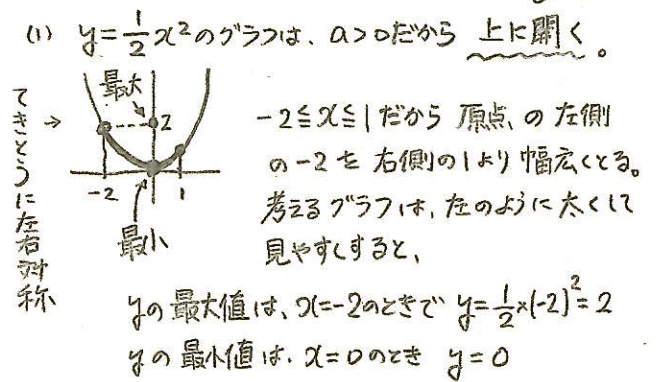 (1) y=1/2x²のグラフは、a>0だから 上に開く。
てきとうに左右対称 →
最大
2
-2 1
最小
-2≦x≦1だから 原点の左側
の-2を右側の1より幅広くとる。
考えるグラフは、左のように太くして
見やすくすると、
yの最大値は、x=-2のときで y=1/2×(-2)²=2
yの最小値は、x=0のとき y=0